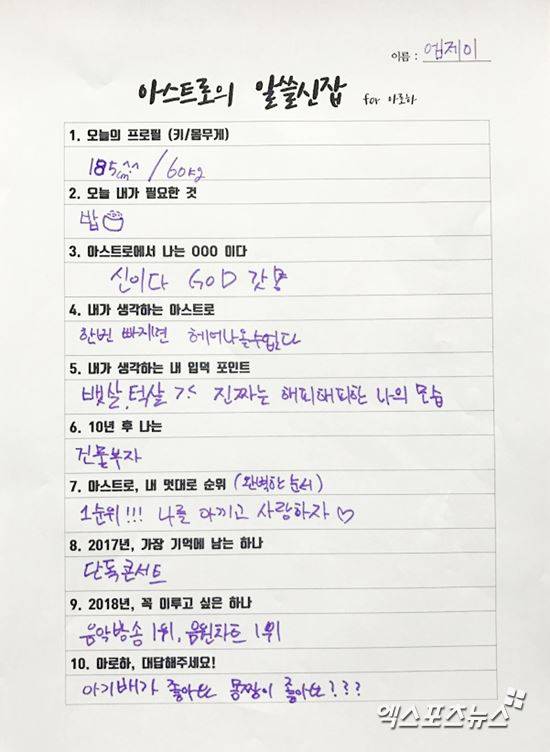 이름 : 엠제이
아스트로의 알쓸신잡 for 아로하
1. 오늘의 프로필 (키/몸무게)
185cm ^^ / 60kg
2. 오늘 내가 필요한 것
밥
3. 아스트로에서 나는 OOO 이다
신이다 GOD 갓
4. 내가 생각하는 아스트로
한번 빠지면 헤어나올수없다
5. 내가 생각하는 내 입덕 포인트
뱃살, 턱살 ㅋㅋ 진짜는 해피해피한 나의 모습
6. 10년 후 나는
건물부자
7. 아스트로, 내 멋대로 순위 (완벽한 순서)
1순위!!! 나를 아끼고 사랑하자 ♡
8. 2017년, 가장 기억에 남는 하나
단독콘서트
9. 2018년, 꼭 이루고 싶은 하나
음악방송 1위, 음원차트 1위
10. 아로하, 대답해주세요!
아기배가 좋아요 몽짱이 좋아요???
엑스포츠뉴스